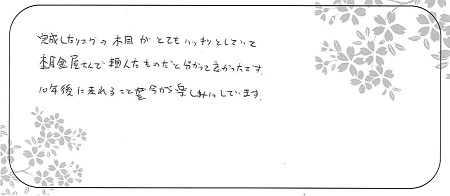 完成したリングの木目がとてもハッキリとしていて
杢目金屋さんで頼んだものだと分かって良かったです。
10年後に来れることを今から楽しみにしています。